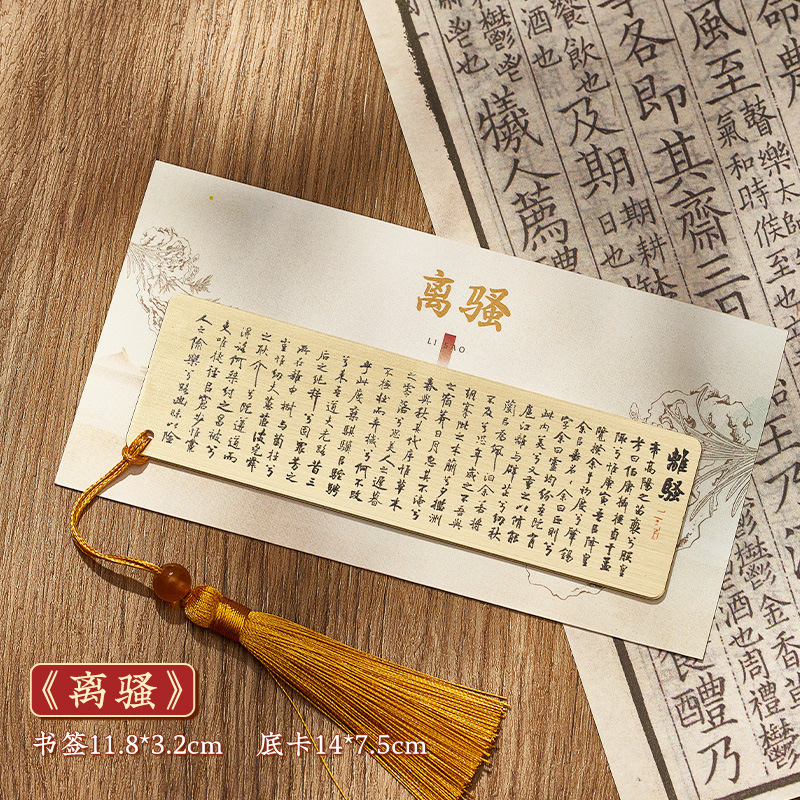 离骚
LI SAO
離騷
帝高陽之苗裔兮朕皇
考曰伯庸攝提貞于孟
陬兮惟庚寅吾以降皇
覽揆余于初度兮肇錫
余以嘉名名余曰正則兮
字余曰靈均紛吾既有
此内美兮又重之以脩能
扈江離與辟芷兮紉秋
蘭以為佩汩余若將
不及兮恐年歲之不吾與
朝搴阰之木蘭兮夕攬洲
之宿莽日月忽其不淹兮
春與秋其代序惟草木
之零落兮恐美人之遲暮
不撫壯而棄穢兮何不改
乎此度乘騏驥以馳騁
兮來吾道夫先路昔三
后之純粹兮固眾芳之
所在雜申椒與菌桂兮
豈惟紉夫蕙茝彼堯舜
之耿介兮既遵道而
得路何桀紂之昌披兮
夫唯捷徑以窘步惟黨
人之偷樂兮路幽昧以險
命農
瞽樂太師
風至
氣和時候至也
各即其齋三日
期耕
飲也
及期
日也
酒也
犧人薦醴
鬱鬯也
鬱金香草
酒也周禮鬱
饗醴乃
《离骚》
书签11.8*3.2cm 底卡14*7.5cm